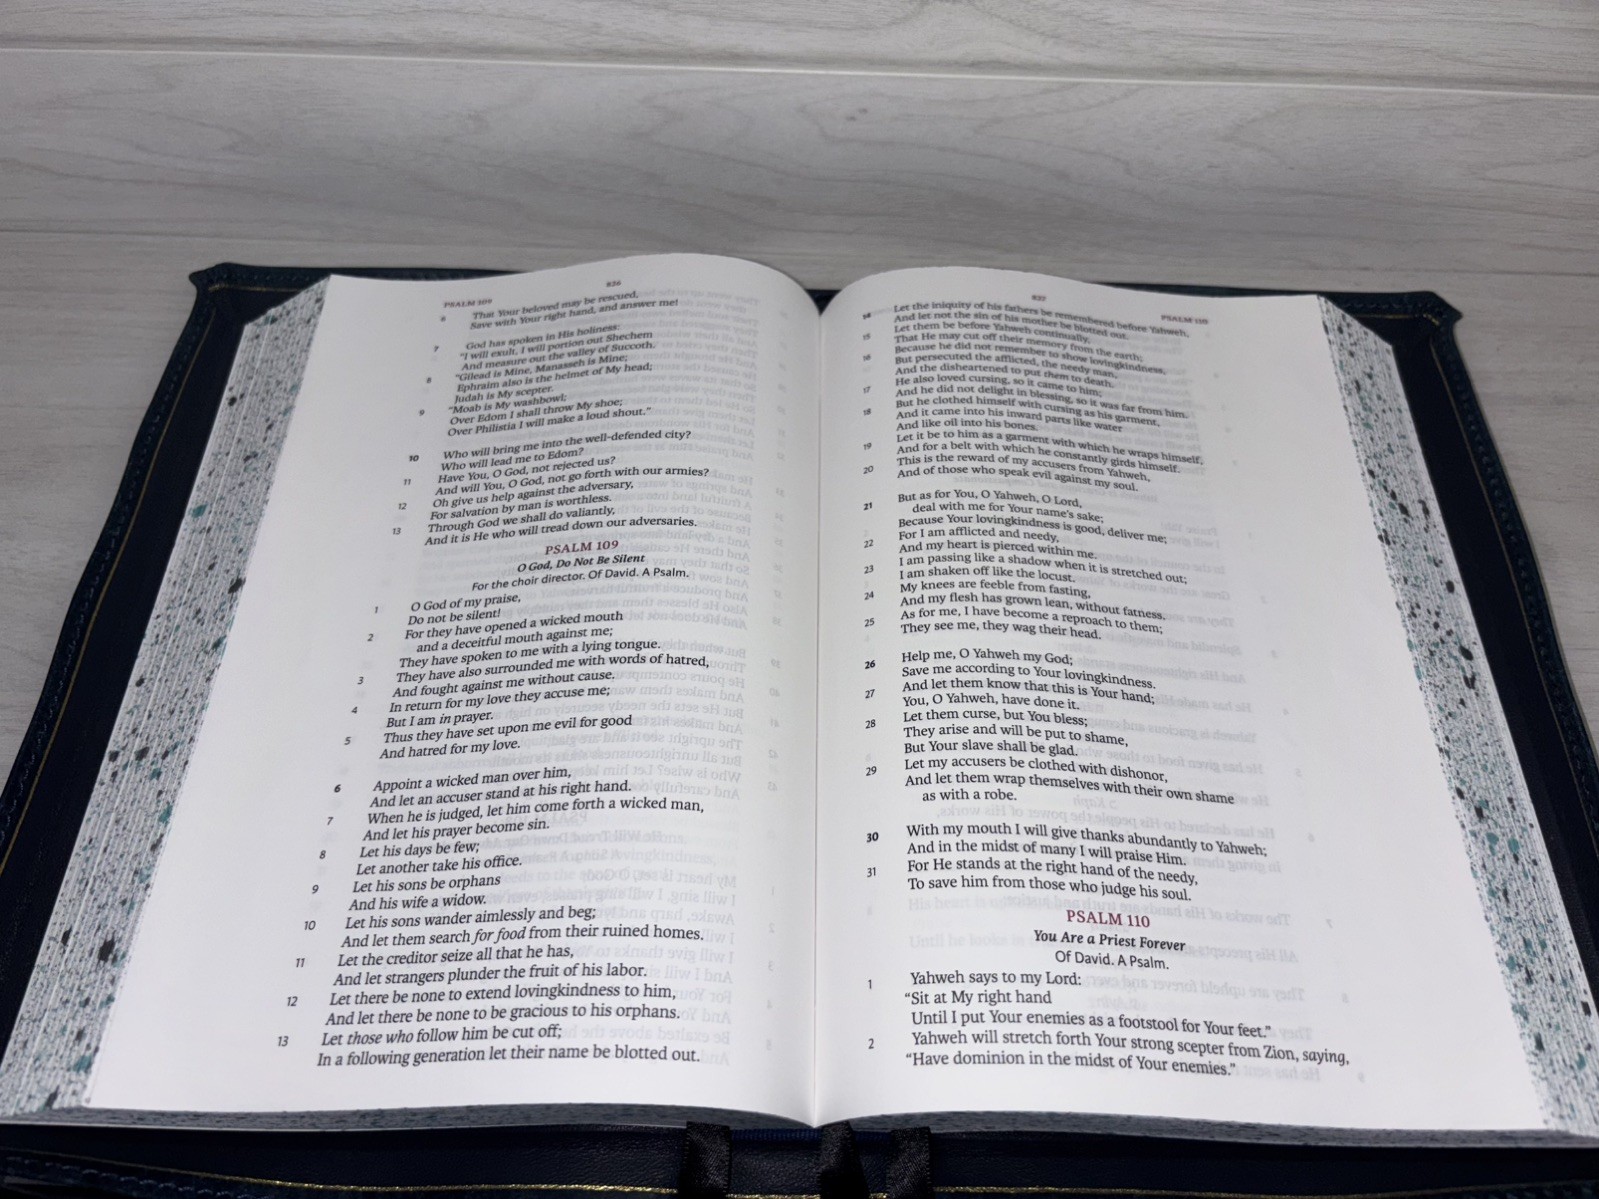 836
PSALM 109
That Your beloved may be rescued,
6 Save with Your right hand, and answer me!
7 God has spoken in His holiness:
"I will exult, I will portion out Shechem
And measure out the valley of Succoth.
8 "Gilead is Mine, Manasseh is Mine;
Ephraim also is the helmet of My head;
Judah is My scepter.
9 "Moab is My washbowl;
Over Edom I shall throw My shoe;
Over Philistia I will make a loud shout."
10 Who will bring me into the well-defended city?
Who will lead me to Edom?
11 Have You, O God, not rejected us?
And will You, O God, not go forth with our armies?
12 Oh give us help against the adversary,
For salvation by man is worthless.
13 Through God we shall do valiantly,
And it is He who will tread down our adversaries.
PSALM 109
O God, Do Not Be Silent
For the choir director. Of David. A Psalm.
1 O God of my praise,
Do not be silent!
2 For they have opened a wicked mouth
and a deceitful mouth against me;
They have spoken to me with a lying tongue.
3 They have also surrounded me with words of hatred,
And fought against me without cause.
4 In return for my love they accuse me;
But I am in prayer.
5 Thus they have set upon me evil for good
And hatred for my love.
6 Appoint a wicked man over him,
And let an accuser stand at his right hand.
7 When he is judged, let him come forth a wicked man,
And let his prayer become sin.
8 Let his days be few;
Let another take his office.
9 Let his sons be orphans
And his wife a widow.
10 Let his sons wander aimlessly and beg;
And let them search for food from their ruined homes.
11 Let the creditor seize all that he has,
And let strangers plunder the fruit of his labor.
12 Let there be none to extend lovingkindness to him,
And let there be none to be gracious to his orphans.
13 Let those who follow him be cut off;
In a following generation let their name be blotted out.
837
PSALM 110
14 Let the iniquity of his fathers be remembered before Yahweh,
And let not the sin of his mother be blotted out.
15 Let them be before Yahweh continually,
That He may cut off their memory from the earth;
16 Because he did not remember to show lovingkindness,
But persecuted the afflicted, the needy man,
And the disheartened to put them to death.
17 He also loved cursing, so it came to him;
And he did not delight in blessing, so it was far from him.
18 But he clothed himself with cursing as his garment,
And it came into his inward parts like water
And like oil into his bones.
19 Let it be to him as a garment with which he wraps himself,
And for a belt with which he constantly girds himself.
20 This is the reward of my accusers from Yahweh,
And of those who speak evil against my soul.
21 But as for You, O Yahweh, O Lord,
deal with me for Your name's sake;
Because Your lovingkindness is good, deliver me;
22 For I am afflicted and needy,
And my heart is pierced within me.
23 I am passing like a shadow when it is stretched out;
I am shaken off like the locust.
24 My knees are feeble from fasting,
And my flesh has grown lean, without fatness.
25 As for me, I have become a reproach to them;
They see me, they wag their head.
26 Help me, O Yahweh my God;
Save me according to Your lovingkindness.
27 And let them know that this is Your hand;
You, O Yahweh, have done it.
28 Let them curse, but You bless;
They arise and will be put to shame,
But Your slave shall be glad.
29 Let my accusers be clothed with dishonor,
And let them wrap themselves with their own shame
as with a robe.
30 With my mouth I will give thanks abundantly to Yahweh;
And in the midst of many I will praise Him.
31 For He stands at the right hand of the needy,
To save him from those who judge his soul.
PSALM 110
You Are a Priest Forever
Of David. A Psalm.
1 Yahweh says to my Lord:
"Sit at My right hand
Until I put Your enemies as a footstool for Your feet."
2 Yahweh will stretch forth Your strong scepter from Zion, saying,
"Have dominion in the midst of Your enemies."